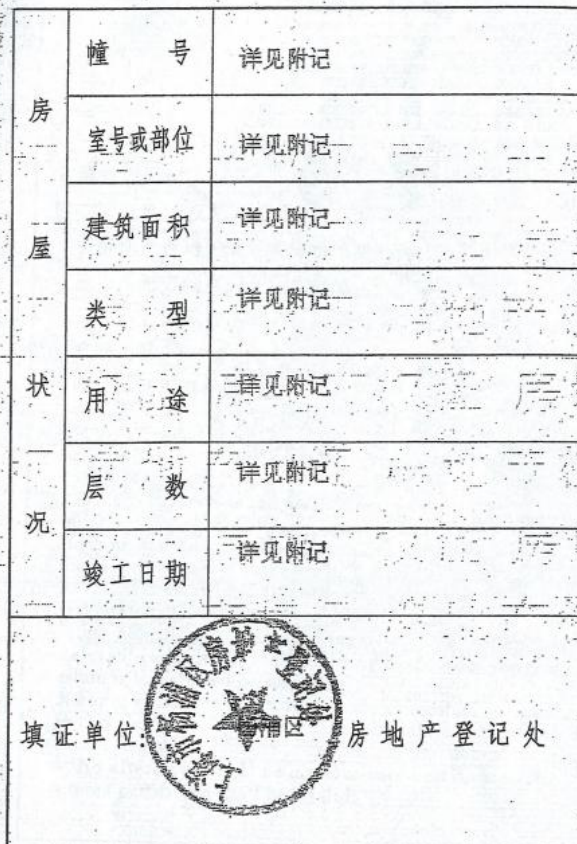 房屋状况
幢号 详见附记
室号或部位 详见附记
建筑面积 详见附记
类型 详见附记
用途 详见附记
层数 详见附记
竣工日期 详见附记
填证单位: 浦区 房地产登记处